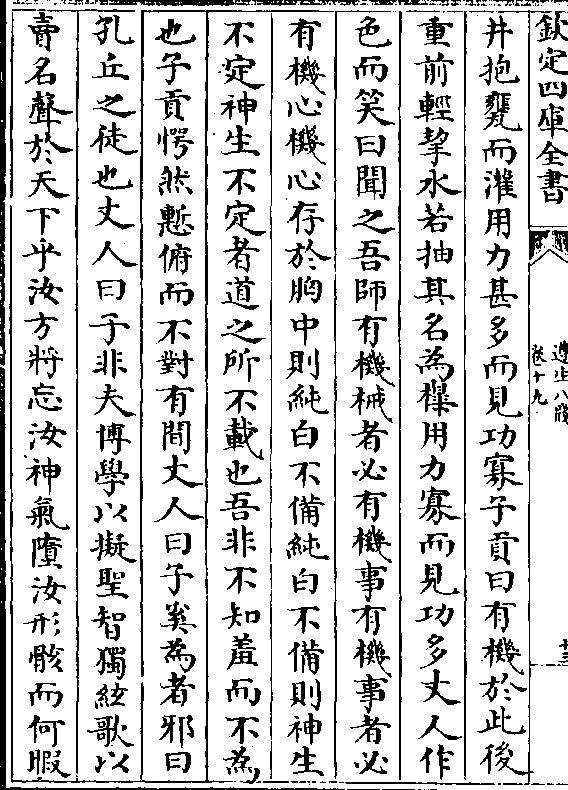 欽定四庫全書
遵生八牋
卷十九
井抱甕而灌用力甚多而見功寡子貢曰有機於此後
重前輕挈水若抽其名為槹用力寡而見功多丈人作
色而笑曰聞之吾師有機械者必有機事有機事者必
有機心機心存於胸中則純白不備純白不備則神生
不定神生不定者道之所不載也吾非不知羞而不為
也子貢愕然慙俯而不對有間丈人曰子奚為者邪曰
孔丘之徒也丈人曰子非夫博學以擬聖智獨絃歌以
賣名聲於天下乎汝方將忘汝神氣墮汝形骸而何暇